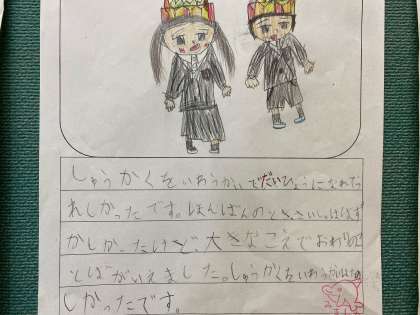 しゅうかくをいわうかいでだいひょうになれてう
れしかったです。ほんばんのときさいしょははず
かしかったけど、大きなこえでおわりのこ
とばがいえました。しゅうかくをいわうかいはたの
しかったです。